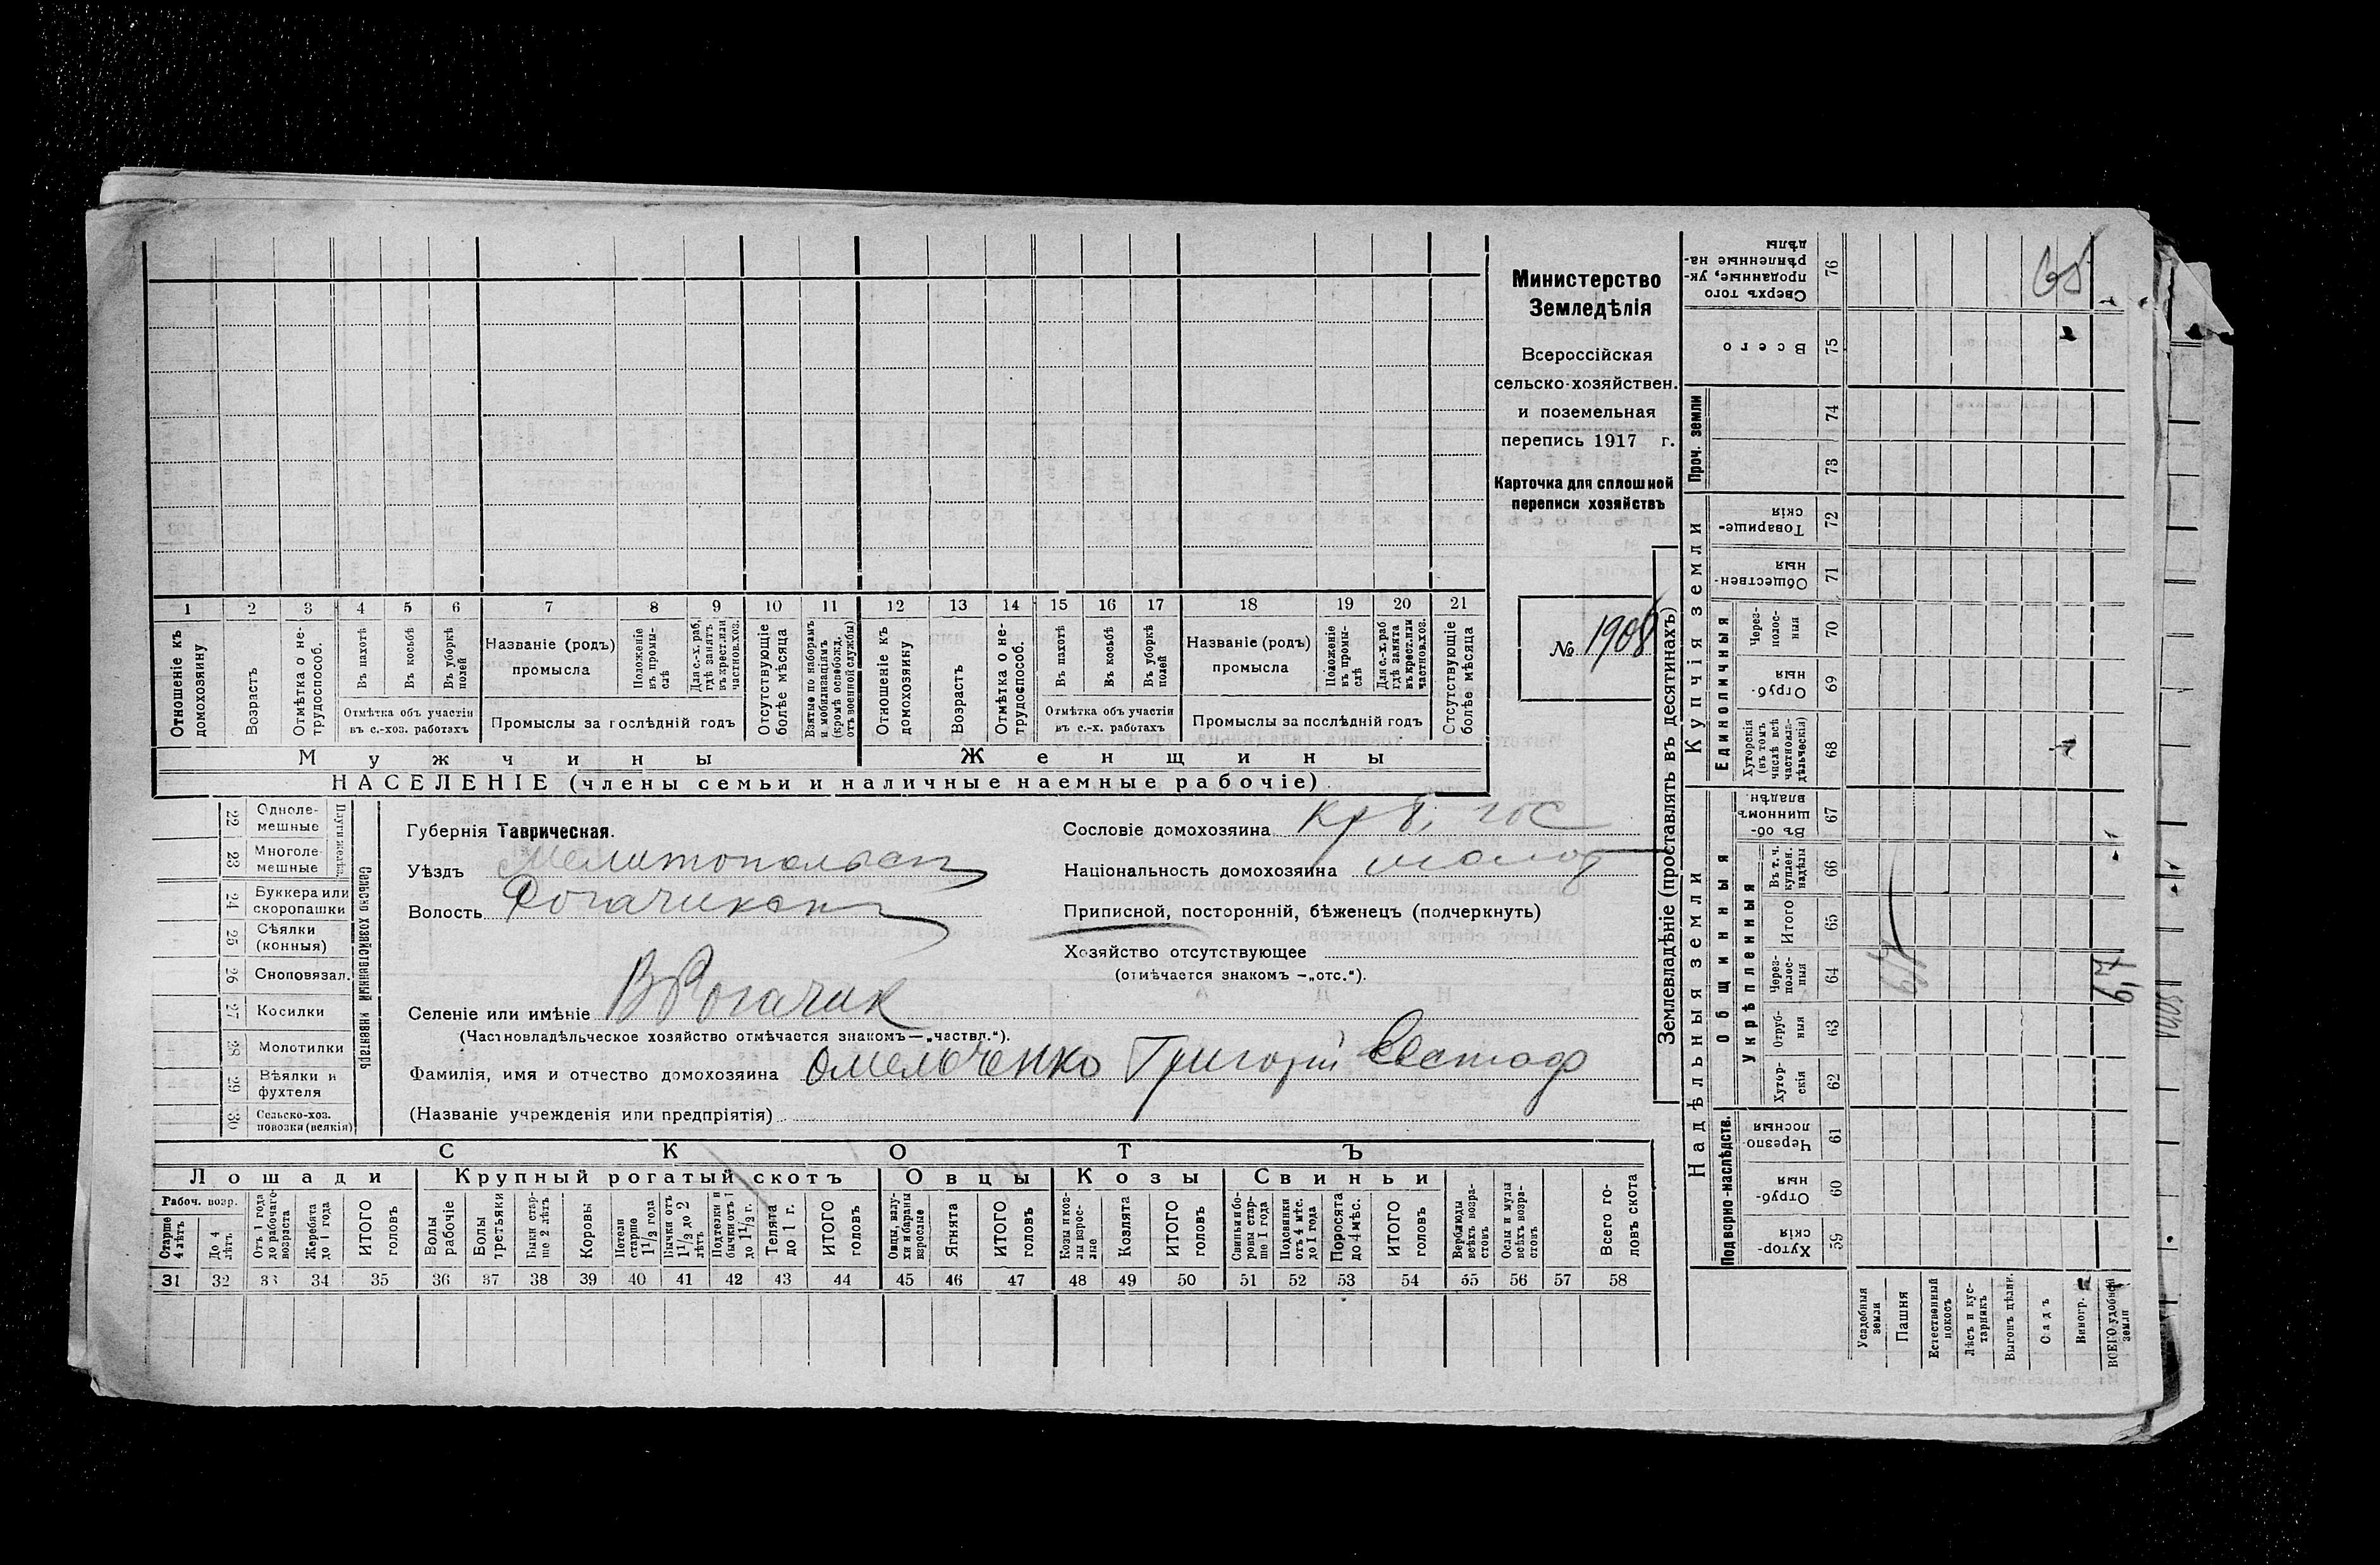 Министерство
Земледѣлія
Всероссійская
сельско-хозяйствен.
и поземельная
перепись 1917 г.
Карточка для сплошной
переписи хозяйствъ
№ 1908
1 2 3 4 5 6 7 8 9 10 11 12 13 14 15 16 17 18 19 20 21
Отношеніе къ домохозяину
Возрастъ
Отмѣтка о не-трудоспособ.
Въ пахотѣ
Въ косьбѣ
Въ уборкѣ полей
Отмѣтка объ участіи въ с.-хоз. работахъ
Названіе (родъ) промысла
Положеніе въ промы-слѣ
Для с.-х. раб. гдѣ занятъ въ крест. или частнов. хоз.
Промыслы за послѣдній годъ
Отсутствующіе болѣе мѣсяца
Взятые по наборамъ и мобилизаціямъ (кромѣ освобожд. отъ военной службы)
Отношеніе къ домохозяину
Возрастъ
Отмѣтка о не-трудоспособ.
Въ пахотѣ
Въ косьбѣ
Въ уборкѣ полей
Отмѣтка объ участіи въ с.-х. работахъ
Названіе (родъ) промысла
Положеніе въ промы-слѣ
Для с.-х. раб. гдѣ занята въ крест. или частнов. хоз.
Промыслы за послѣдній годъ
Отсутствующіе болѣе мѣсяца
Мужчины Женщины
НАСЕЛЕНІЕ (члены семьи и наличные наемные рабочіе)
Сельско хозяйственный инвентарь
22 Одноле-мешные
23 Многоле-мешные
24 Буккера или скоропашки
25 Сѣялки (конныя)
26 Сноповязал.
27 Косилки
28 Молотилки
29 Вѣялки и фухтеля
30 Сельско-хоз. повозки (всякія)
Губернія Таврическая.
Уѣздъ Мелитопольск
Волость Рогачикск
Селеніе или имѣніе В Рогачик
(Частновладѣльческое хозяйство отмѣчается знакомъ—„частвл.“).
Сословіе домохозяина кр б. гос
Національность домохозяина малор
Приписной, посторонній, бѣженецъ (подчеркнуть)
Хозяйство отсутствующее
(отмѣчается знакомъ —„отс.“).
Фамилія, имя и отчество домохозяина Омельченко Григорій Евстаф
(Названіе учрежденія или предпріятія)
СКОТЪ
Лошади Крупный рогатый скотъ Овцы Козы Свиньи
Рабоч. возр.
Старше 4 лѣтъ
До 4 лѣтъ
Отъ 1 года до рабочаго возраста
Жеребята до 1 года
ИТОГО головъ
Волы рабочіе
Волы третьяки
Быки стар-ше 2 лѣтъ
Коровы
Нетели старше 1 1/2 года
Бычки отъ 1 1/2 до 2 лѣтъ
Подтелки и бычки отъ 1 до 1 1/2 г.
Телята до 1 г.
ИТОГО головъ
Овцы, валу-хи и бараны взрослые
Ягнята
ИТОГО головъ
Козы и коз-лы взрос-лые
Козлята
ИТОГО головъ
Свиньи и бо-ровы стар-ше 1 года
Подсвинки отъ 4 мѣс. до 1 года
Поросята до 4 мѣс.
ИТОГО головъ
Верблюды всѣхъ возра-стовъ
Ослы и мулы всѣхъ возра-стовъ
Всего го-ловъ скота
31 32 33 34 35 36 37 38 39 40 41 42 43 44 45 46 47 48 49 50 51 52 53 54 55 56 57 58
Землевладѣніе (проставлять въ десятинахъ)
Надѣльныя земли Купчія земли Проч. земли
Подворно-наслѣдств. Общинныя Единоличныя
Укрѣпленныя
59 Хутор-скія
60 Отруб-ныя
61 Черезпо-лосныя
62 Хутор-скія
63 Отруб-ныя
64 Через-полос-ныя
65 Итого
66 Въ т. ч. куплен. надѣлы
67 Въ об-щинномъ владѣн.
68 Хуторскія (въ томъ числѣ всѣ частновла-дѣльческія)
69 Отруб-ныя
70 Через-полос-ныя
71 Обществен-ныя
72 Товарище-скія
73
74
75 Всего
76 Сверхъ того проданные, ук-рѣпленные на-дѣлы
Усадебныя земли
Пашня
Естественный покосъ
Лѣсъ и кус-тарникъ
Выгонъ цѣлин.
Садъ
Виногр.
ВСЕГО удобной земли
6,7
6,7